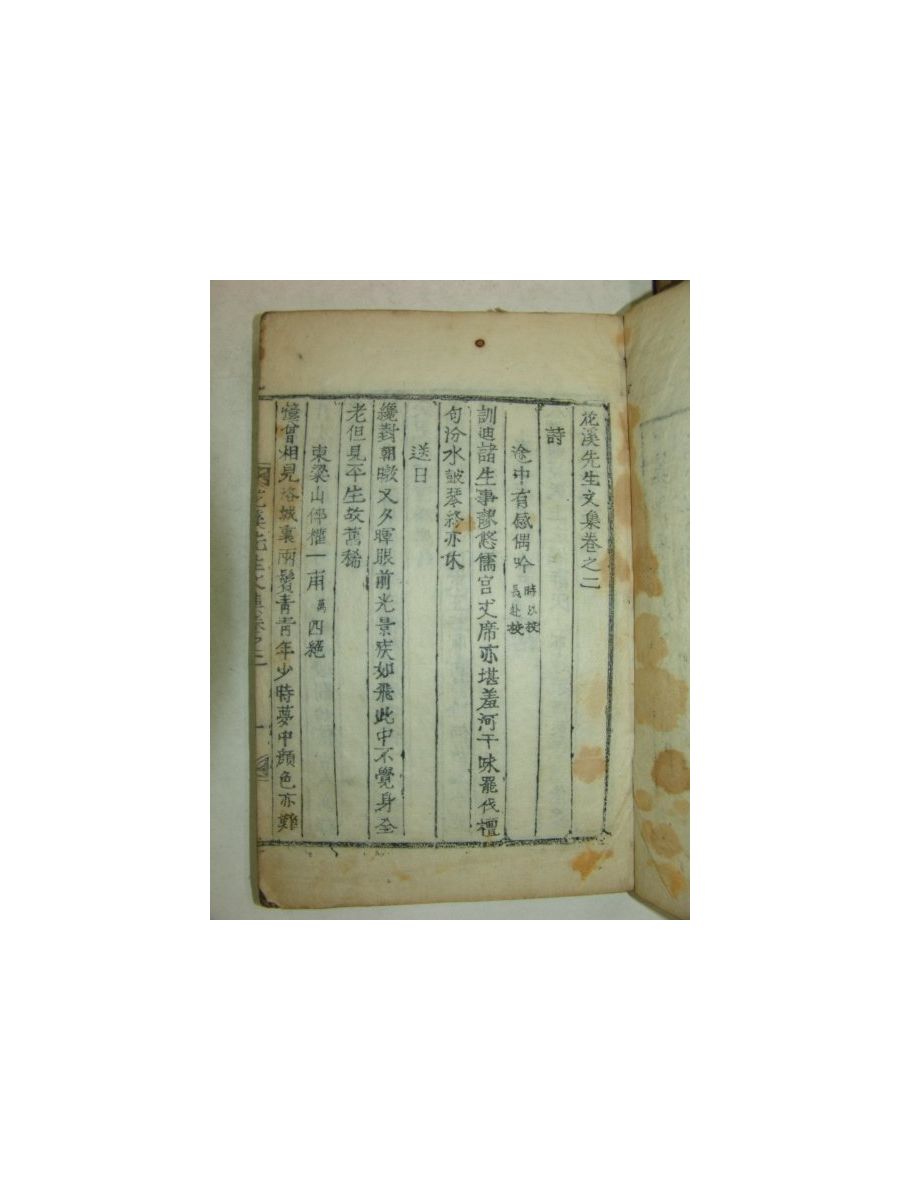 花溪先生文集卷之二
詩
途中有感偶吟
時以校
長赴校
訓迪諸生事謬悠儒宮丈席亦堪羞河干味罷伐檀
句汾水皷琴終亦休
送日
纔對朝暾又夕暉眼前光景疾如飛此中不覺身全
老但見平生故舊稀
柬梁山倅權一甫萬四絕
憶曾相見洛城裏兩鬓青青年少時夢中顔色亦難
花溪先生文集卷之二 一